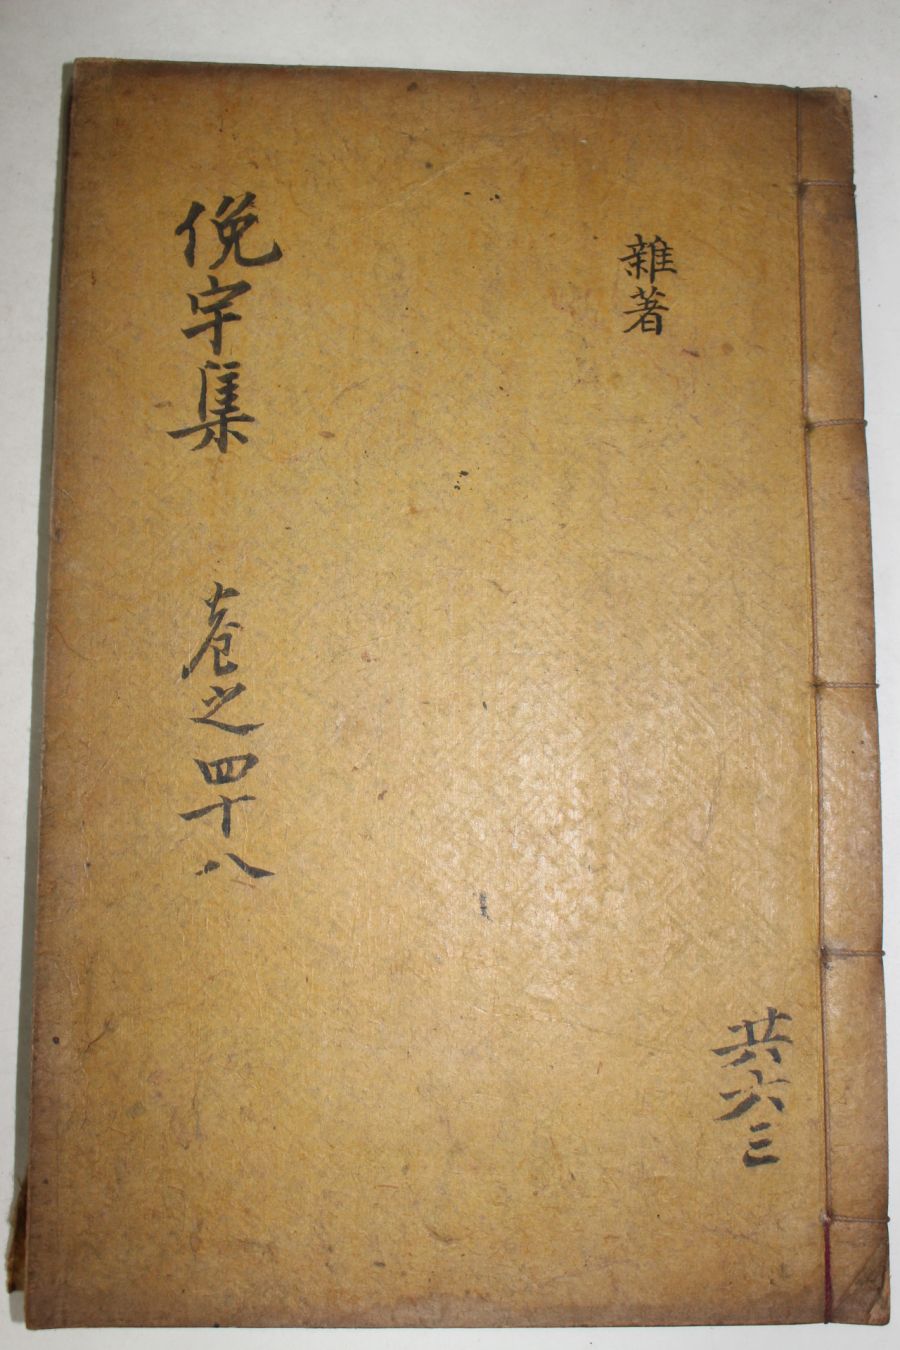 雜著
共六三
俛宇集 卷之四十八